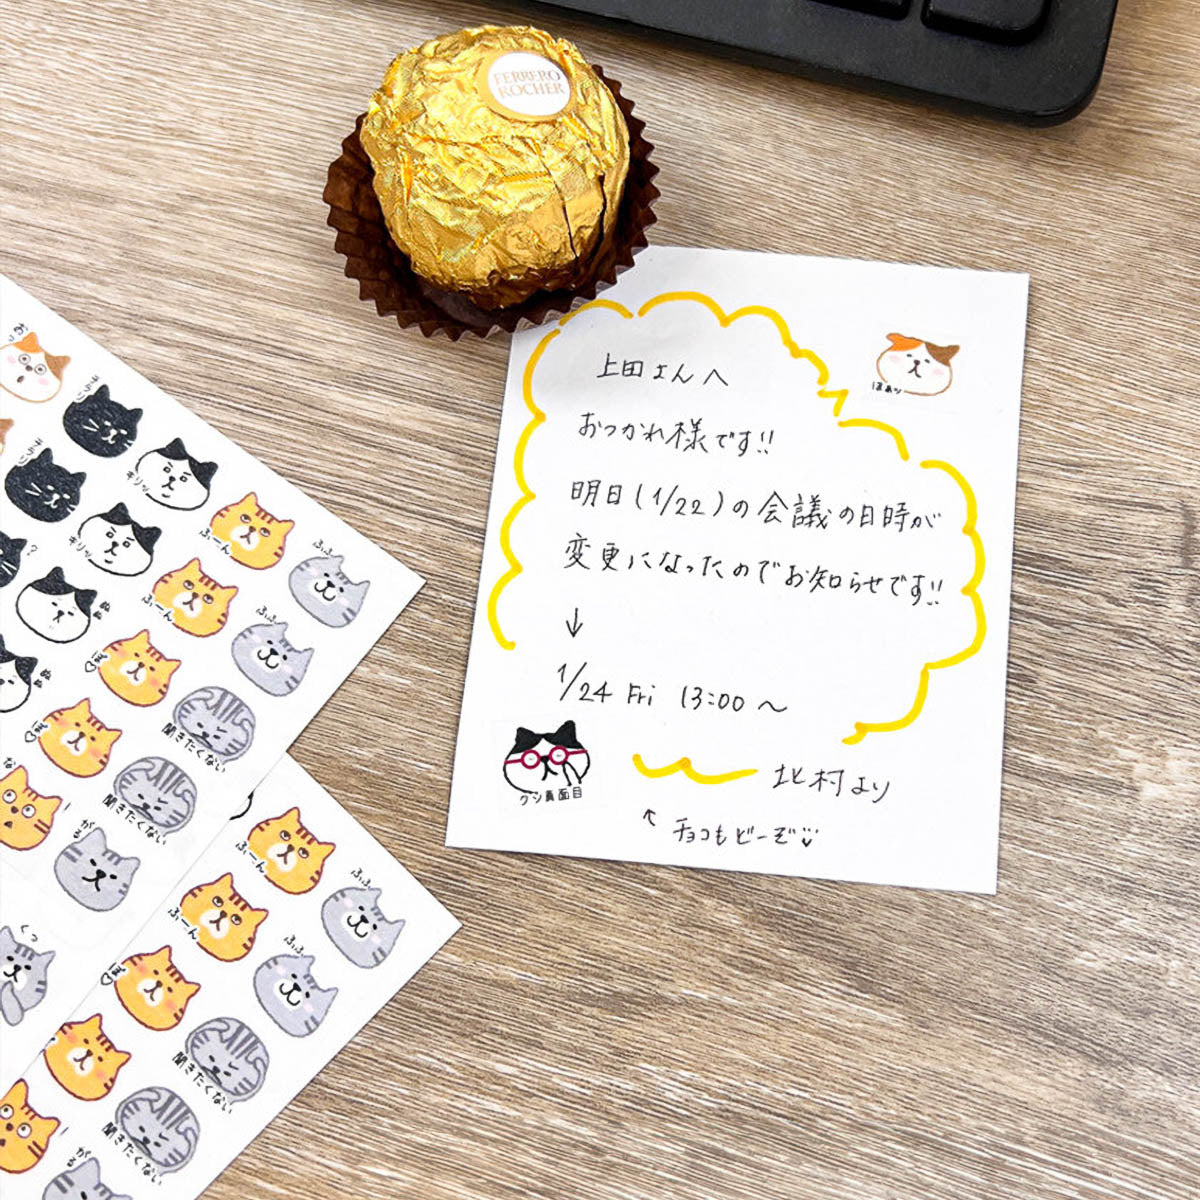 FERRERO
ROCHER
上田さんへ
おつかれ様です!!
明日(1/22)の会議の日時が
変更になったのでお知らせです!!
↓
1/24 Fri 13:00〜
北村より
↖ チョコもどーぞ
ほぁッ
クソ真面目
キリッ
ふーん
ふふ
キリッ
ふーん
ふふ
ぽ♡
聞きたくない
ぽ♡
聞きたくない
がる
くっ
ふーん
ふふ
ふーん
ふふ
ぽ♡
聞きたくない
聞きたくない
がる